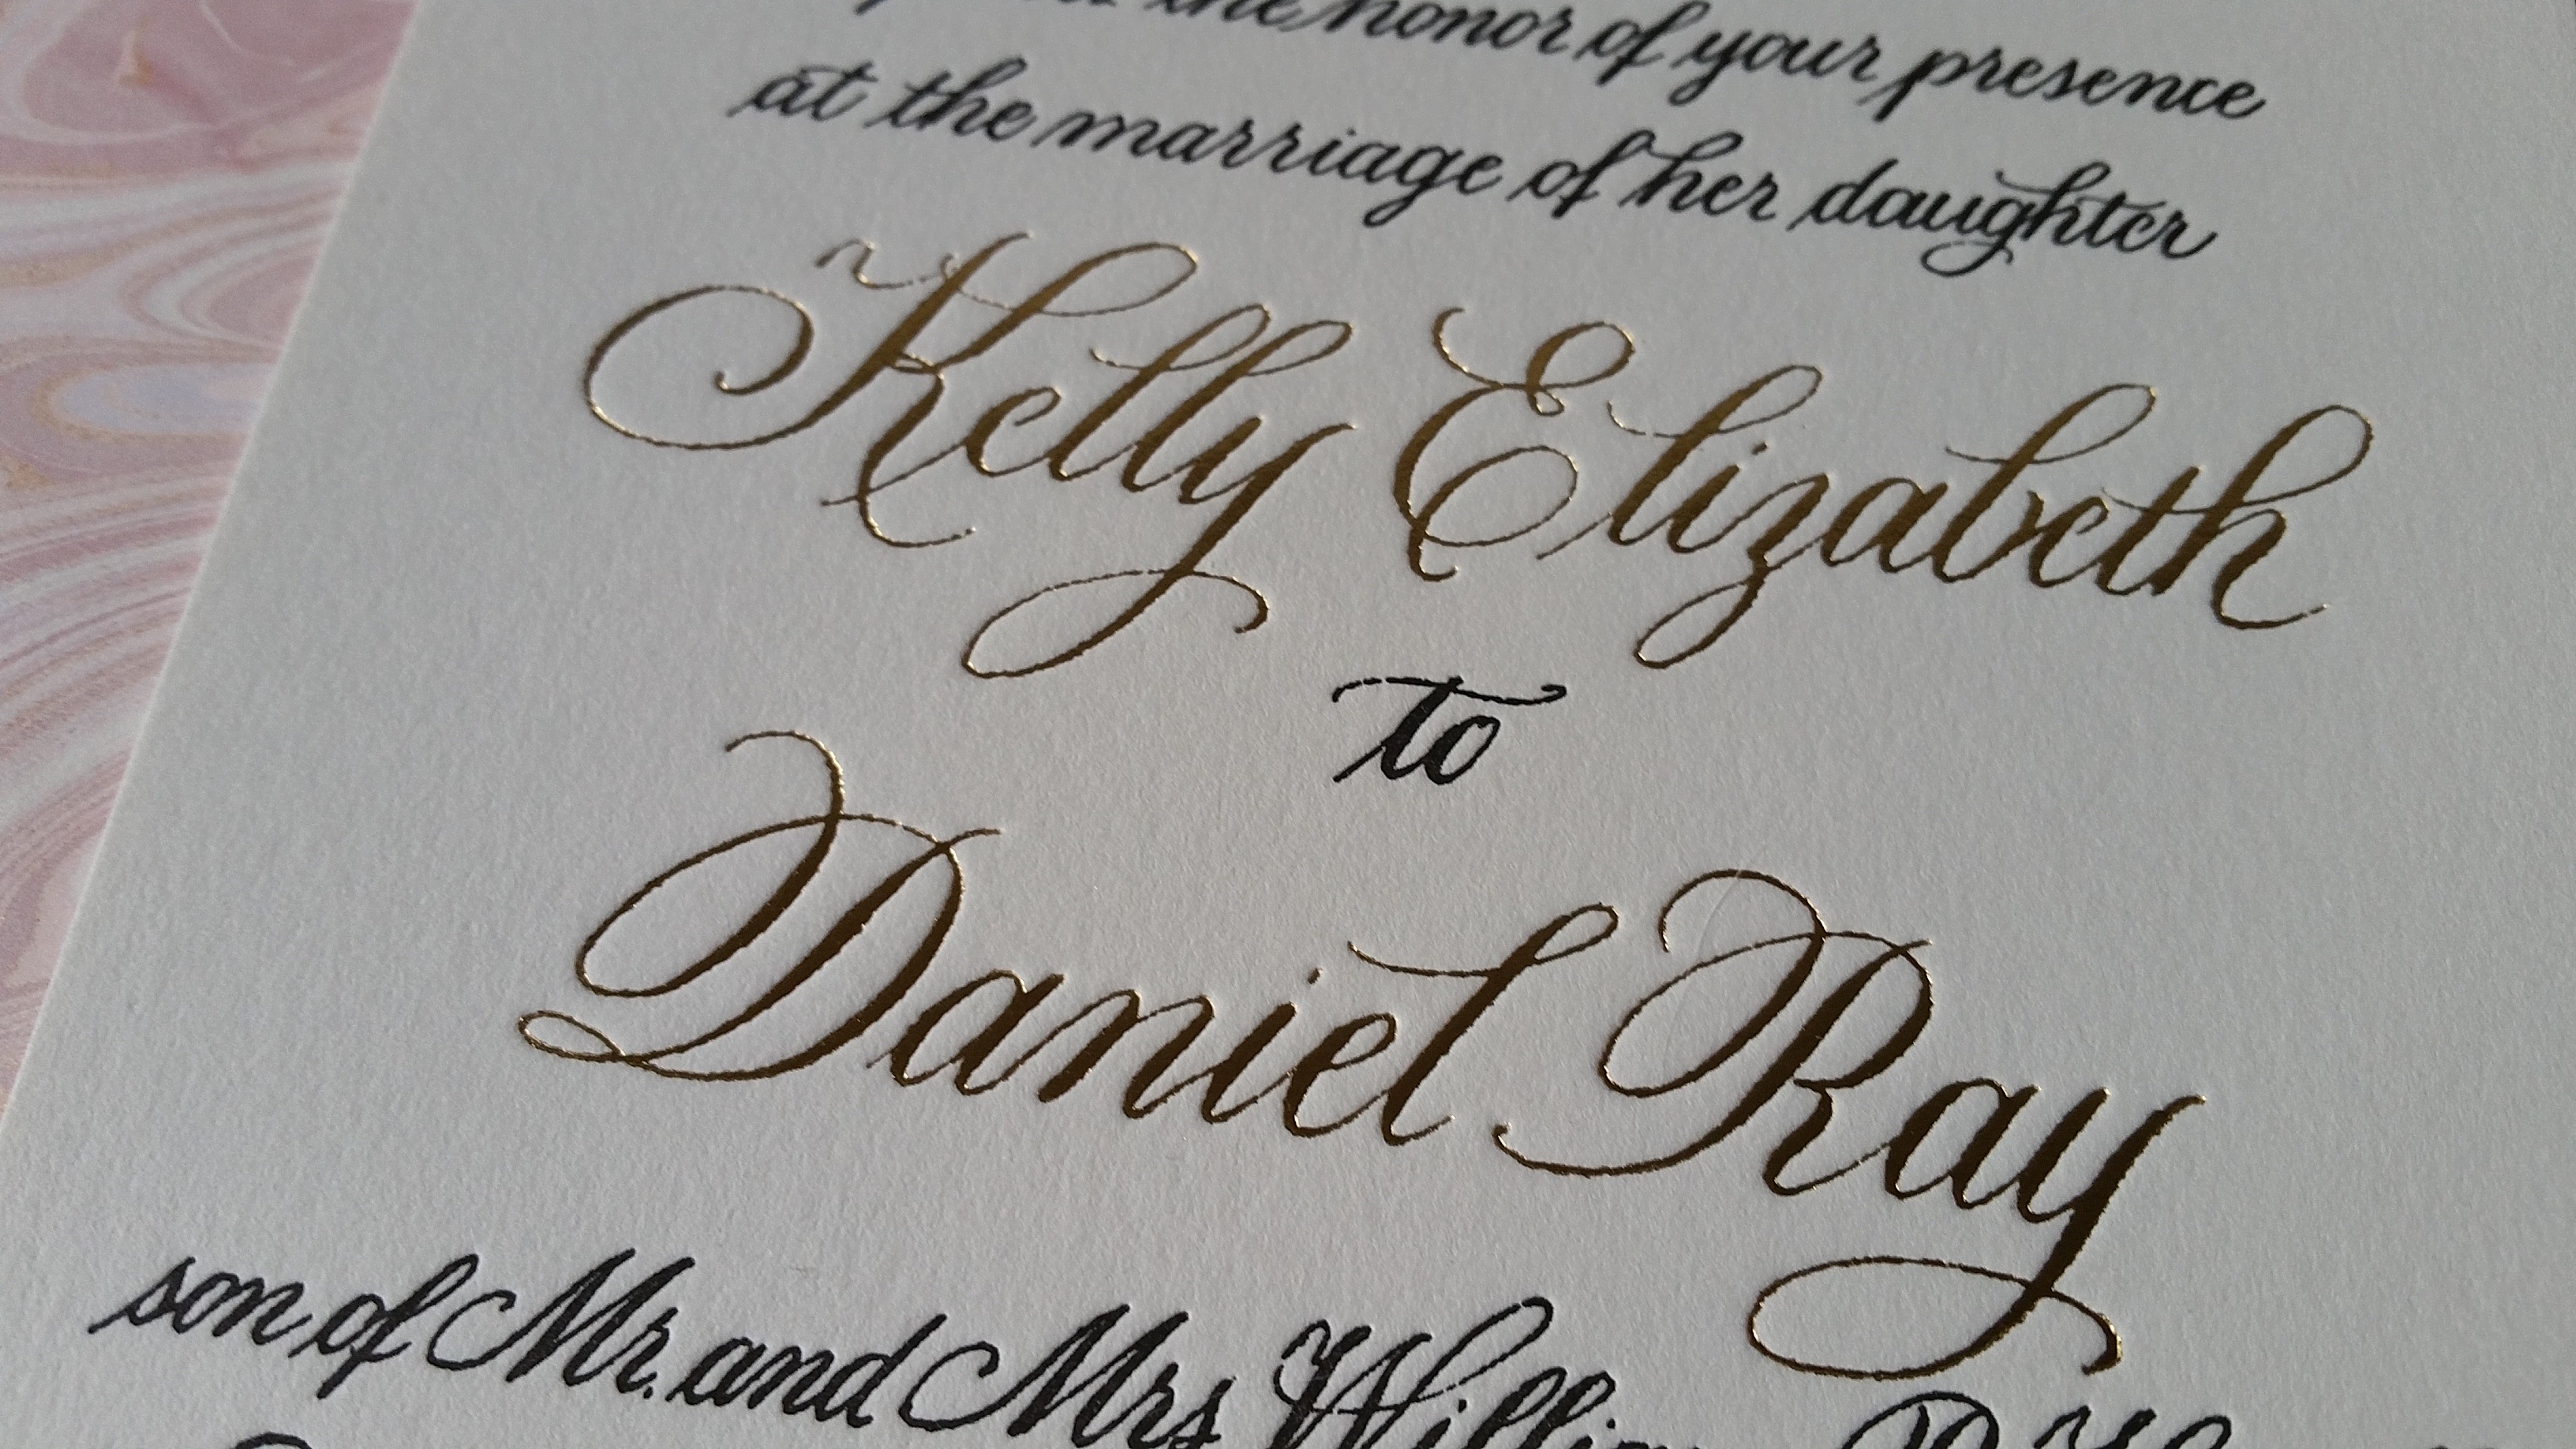 the honor of your presence
at the marriage of her daughter
Kelly Elizabeth
to
Daniel Ray
son of Mr. and Mrs